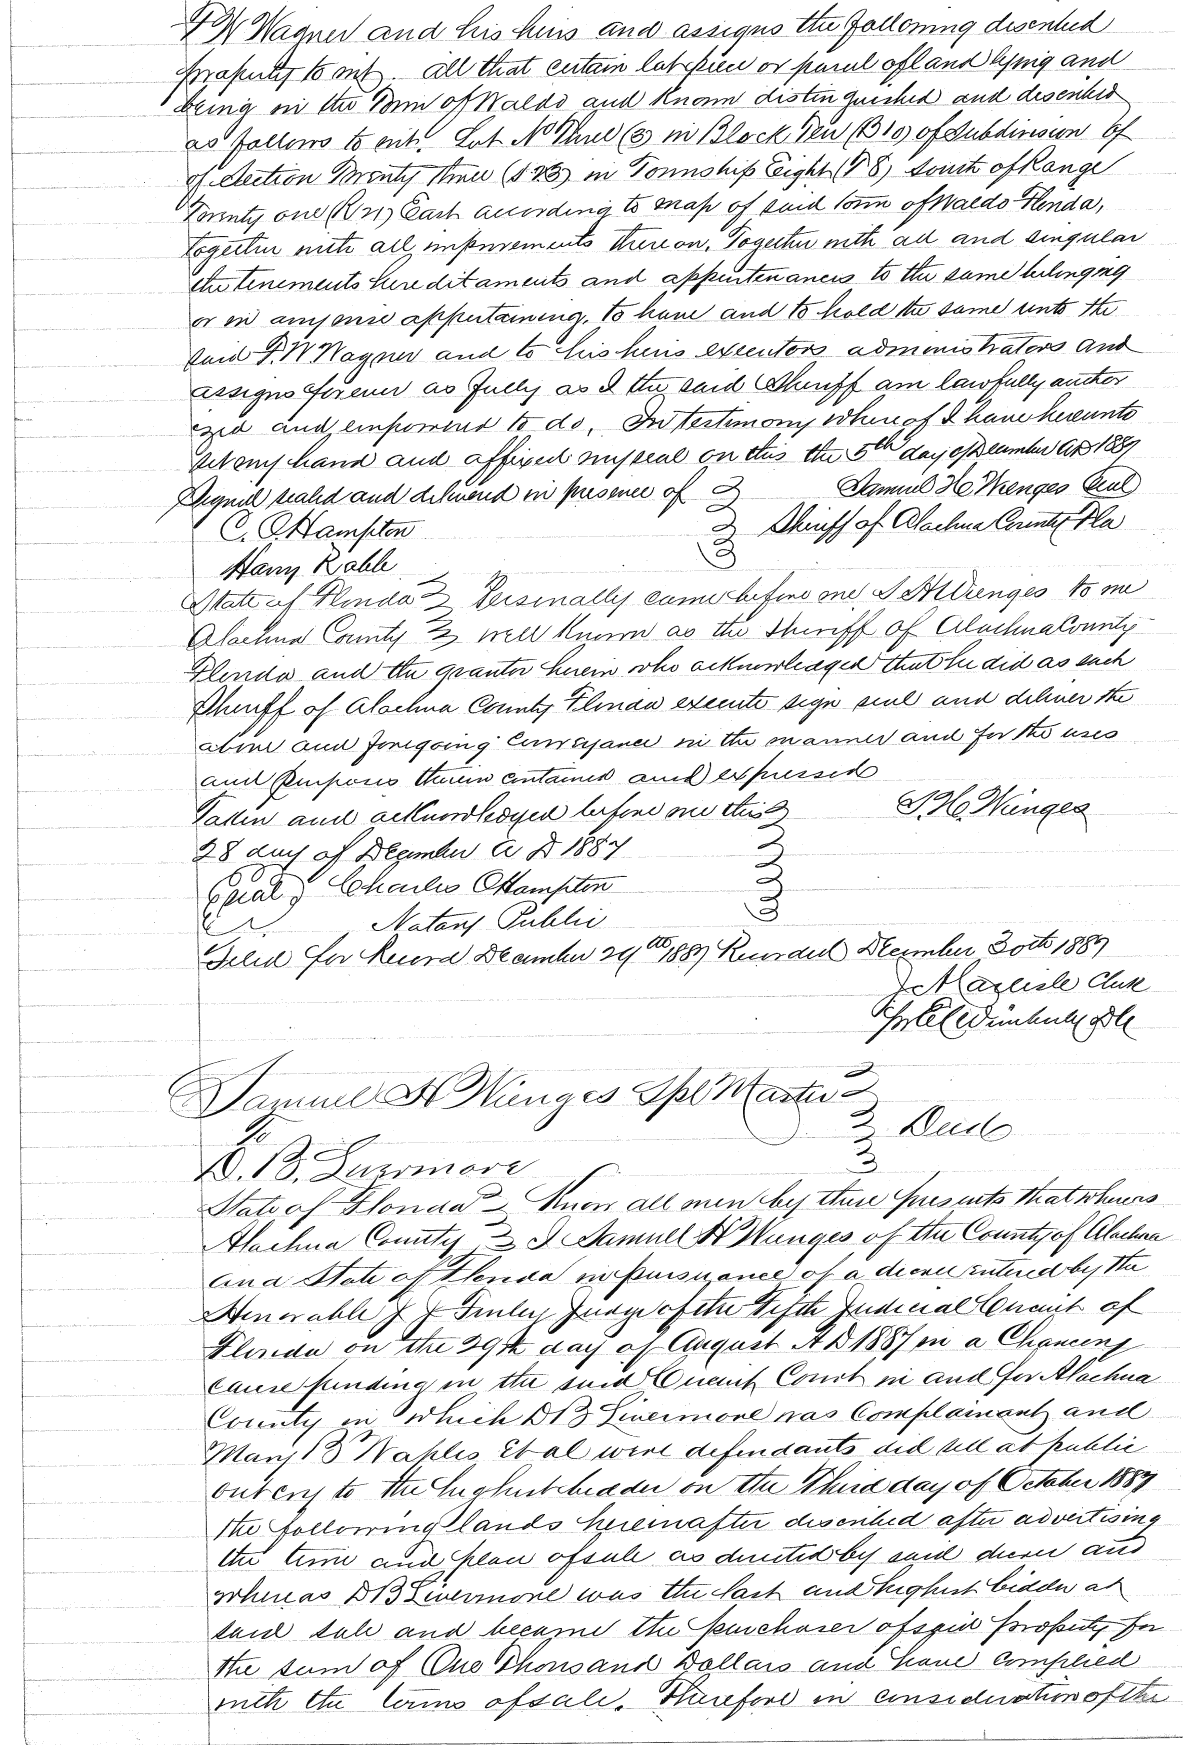 P W Wagner and his heirs and assigns the following described
property to wit. all that certain lot piece or parcel of land lying and
being in the Town of Waldo and Known distinguished and described
as follows to wit. Lot No Three (3) in Block Ten (B10) of Subdivision of
of Section Twenty three (S 23) in Township Eight (T 8) South of Range
Twenty one (R 21) East according to map of said town of Waldo Florida,
together with all improvements thereon, Together with all and singular
the tenements hereditaments and appurtenances to the same belonging
or in anywise appertaining, to have and to hold the same unto the
said P. W Wagner and to his heirs executors administrators and
assigns forever as fully as I the said Sheriff am lawfully author
ized and empowered to do. In testimony whereof I have hereunto
set my hand and affixed my seal on this the 5th day of December AD 1887
Signed sealed and delivered in presence of Samuel H. Wienges Seal
C. C. Hampton Sheriff of Alachua County Fla
Harry
State of Florida Personally came before me S H Wienges to me
Alachua County well Known as the Sheriff of Alachua County
Florida and the grantor herein who acknowledged that he did as such
Sheriff of Alachua County Florida execute sign seal and deliver the
above and foregoing conveyance in the manner and for the uses
and purposes therein contained and expressed
Taken and acknowledged before me this S. H. Wienges
28 day of December A D 1887
(Seal) Charles C Hampton
Notary Public
Filed for Record December 29th 1887 Recorded December 30th 1887
J A Carlisle Clerk
Samuel H Wienges Spl Master
To Deed
D. B. Livermore
State of Florida Know all men by these presents that whereas
Alachua County I Samuel H Wienges of the County of Alachua
and State of Florida in pursuance of a decree entered by the
Honorable J J Finley Judge of the Fifth Judicial Circuit of
Florida on the 29th day of August A D 1887 in a Chancery
cause pending in the said Circuit Court in and for Alachua
County in which D B Livermore was Complainant and
Mary B Naples et al were defendants did sell at public
outcry to the highest bidder on the Third day of October 1887
the following lands hereinafter described after advertising
the time and place of sale as directed by said decree and
whereas D B Livermore was the last and highest bidder at
said sale and became the purchaser of said property for
the sum of One Thousand Dollars and have complied
with the terms of sale. Therefore in consideration of the